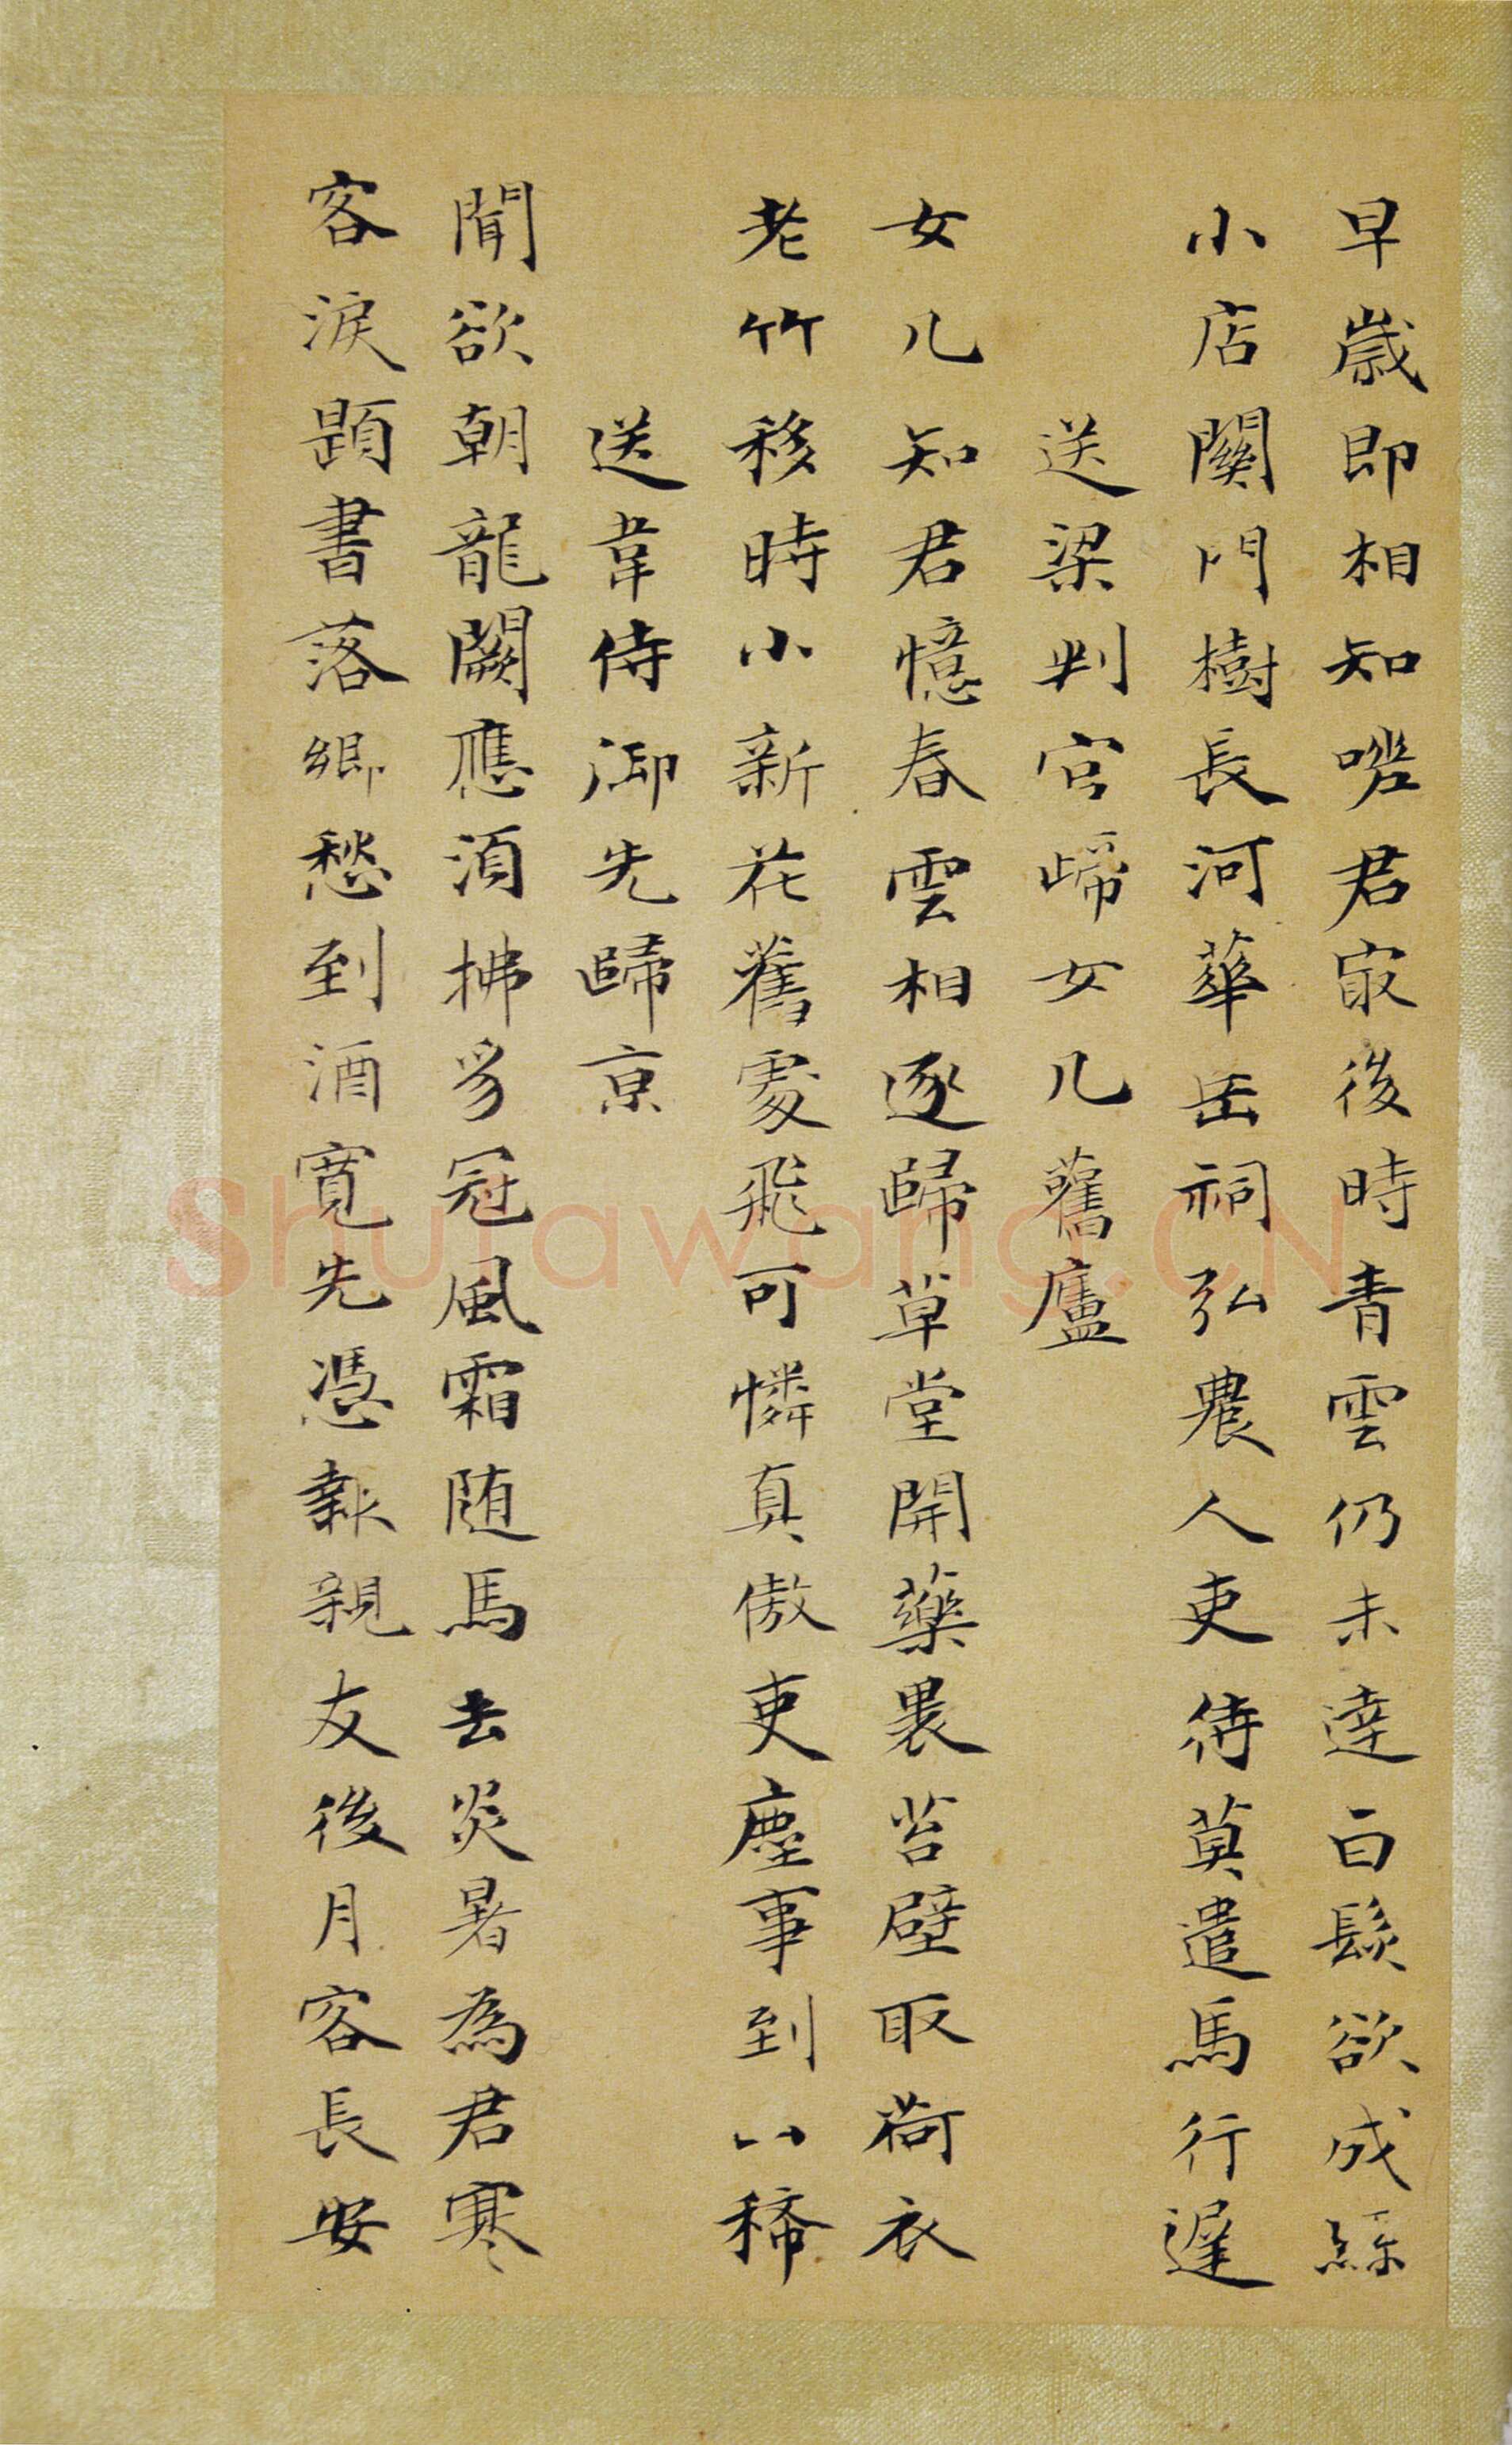 早歲即相知嗟君最後時青雲仍未達白髮欲成絲
小店關門樹長河華岳祠弘農人吏待莫遣馬行遲
送梁判官歸女几舊廬
女几知君憶春雲相逐歸草堂開藥裹苔壁取荷衣
老竹移時小新花舊處飛可憐真傲吏塵事到山稀
送韋侍御先歸京
聞欲朝龍闕應須拂豸冠風霜隨馬去炎暑為君寒
客淚題書落鄉愁到酒寬先憑報親友後月客長安
Shufawang.CN